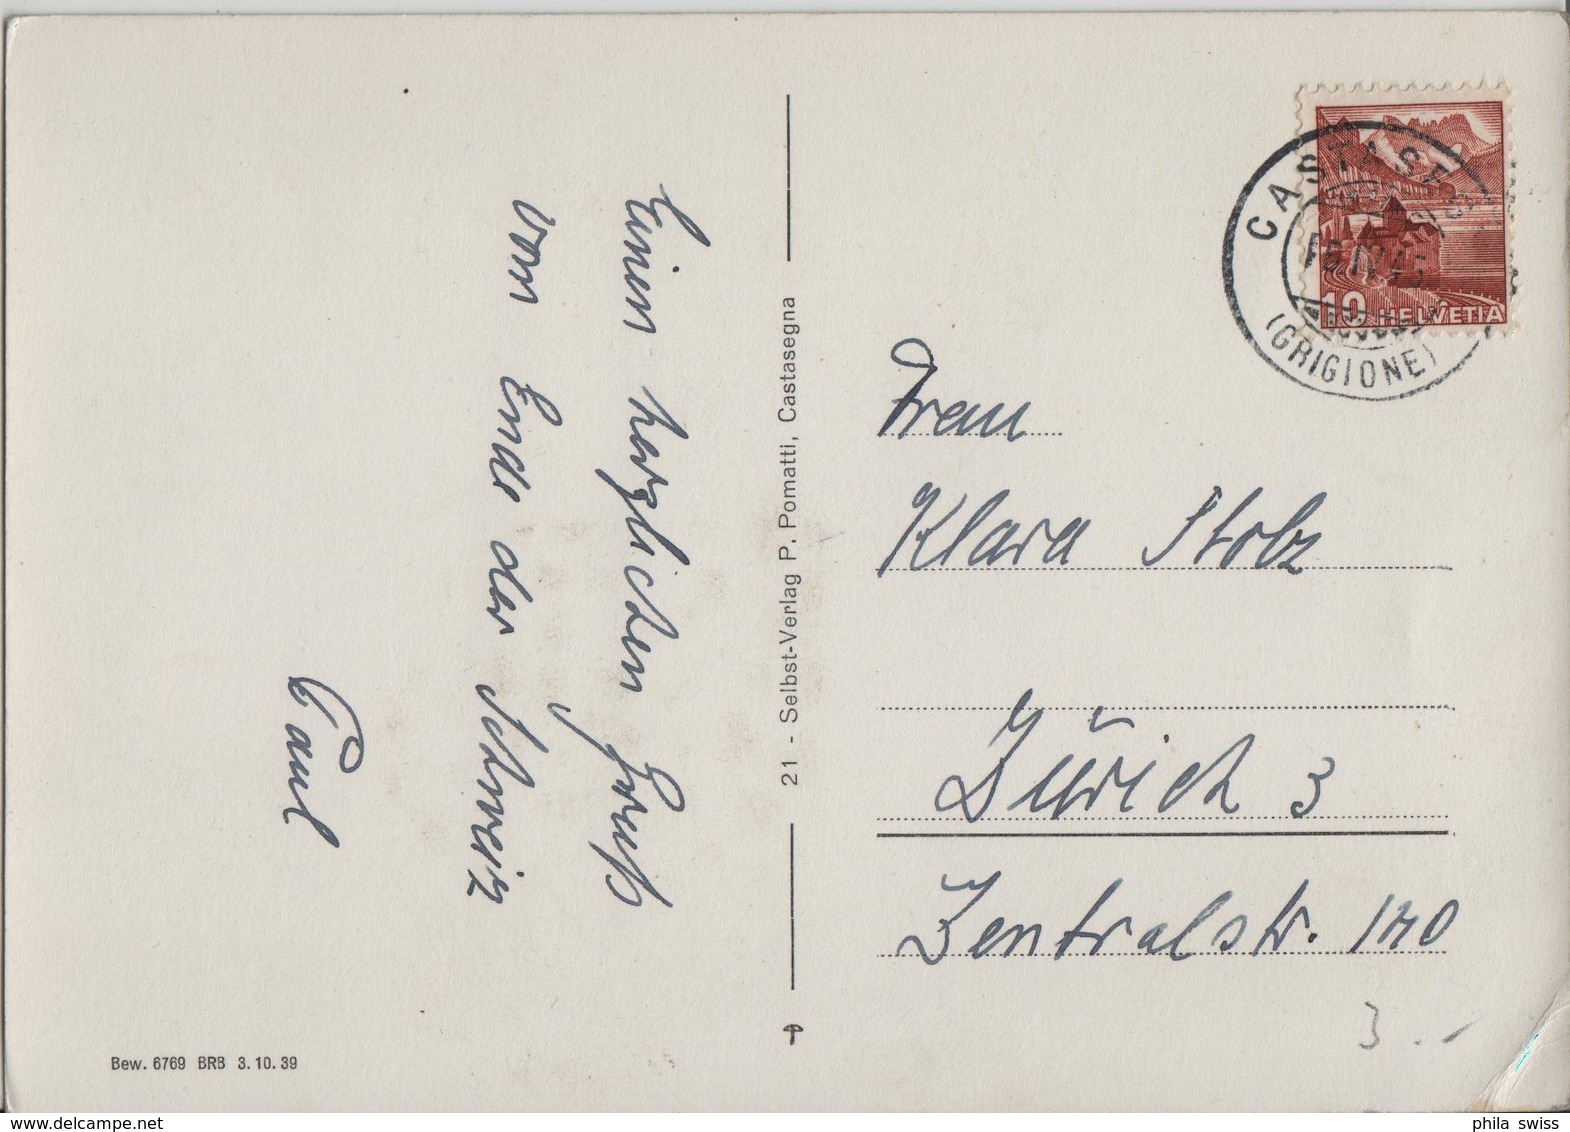 Einen herzlichen Gruß
von Ende der Schweiz
Paul
21 - Selbst-Verlag P. Pomatti, Castasegna
Bew. 6769 BRB 3.10.39
CASTASE
(GRIGIONE)
10 HELVETIA
Frau
Klara Stolz
Zürich 3
Zentralstr. 140
3.-
phila swiss